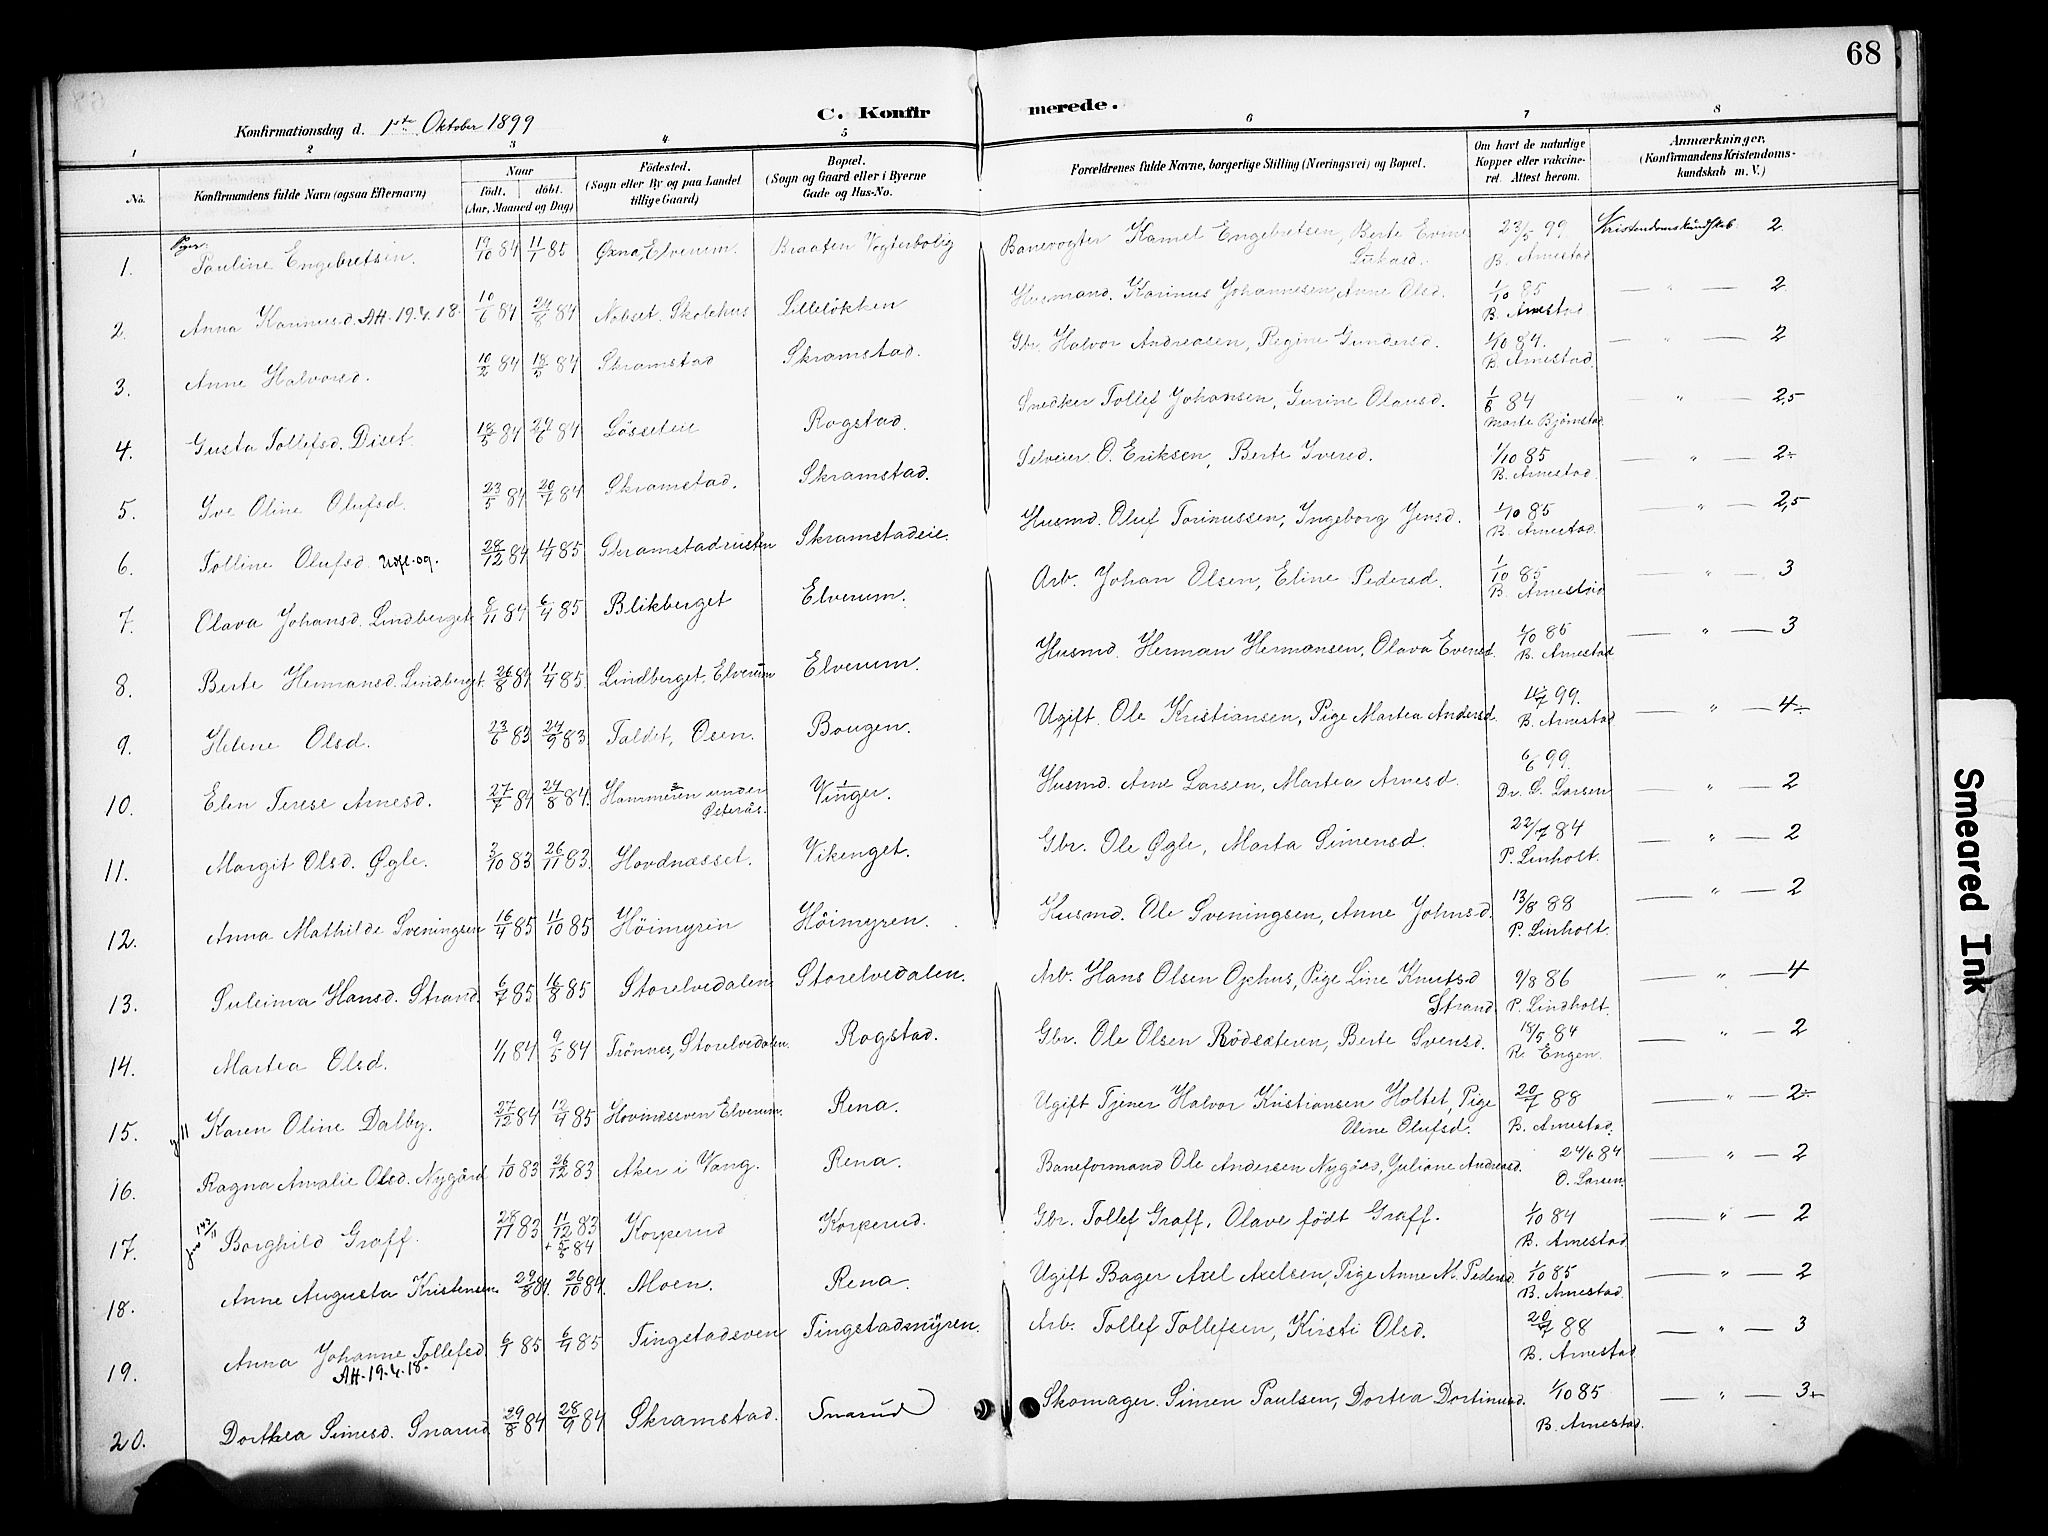 68
Konfirmationsdag d. 1ste Oktober 1899
C. Konfirmerede.
1 2 3 4 5 6 7 8
No. Konfirmandens fulde Navn (ogsaa Efternavn) Naar født. døbt. (Aar, Maaned og Dag) Fødested. (Sogn eller By og paa Landet tillige Gaard) Bopæl. (Sogn og Gaard eller i Byerne Gade og Hus-No. Forældrenes fulde Navne, borgerlige Stilling (Næringsvei) og Bopæl. Om havt de naturlige Kopper eller vakcineret. Attest herom. Anmærkninger. (Konfirmandens Kristendomskundskab m. V.)
Piger:
1. Pauline Engebretsen. 19/10 84 11/1 85 Øxna, Elverum. Braaten Vogterbolig Banevogter Kamel Engebretsen, Berte Evine Lukasd. 23/5 99 B. Arnestad Kristendomskundskab: 2
2. Anna Karinusd. Att. 19.4.18. 10/6 84 24/8 84 Nobset Skolehus Lilleløkken Husmand. Karinus Johannesen, Anne Olsd. 1/10 85 B. Arnestad — " — 2
3. Anne Halvorsd. 10/2 84 18/5 84 Skramstad Skramstad. Gbr. Halvor Andreasen, Regine Gundersd. 1/10 84. B. Arnestad. — " — 2
4. Gusta Tollefsd. Diset. 18/5 84 24/6 84 Løsseteie Rogstad. Snedker Tollef Johansen, Gurine Olausd. 1/8 84 Marte Bjørnstad " — 2,5
5. Ive Oline Olufsd. 23/5 84 20/7 84 Skramstad. Skramstad. Selveier O. Eriksen, Berte Iversd. 1/10 85 B. Arnestad. — " — 2-
6. Tolline Olufsd. 28/12 84 4/4 85 Skramstadeie. Husmd. Oluf Torinussen, Ingeborg Jensd. 1/10 85 B. Arnestad. — " — 2,5
7. Olava Johansd. Lindberget 8/11 84 6/4 85 Blikberget Elverum. Arb. Johan Olsen, Eline Pedersd. 1/10 85 B. Arnestad — " — 3
8. Berte Hermansd. Lindberget. 26/8 84 11/4 85 Lindberget. Elverum Elverum. Husmd. Herman Hermansen, Olava Evensd. 1/10 85 B. Arnestad — " — 3
9. Helene Olsd. 23/6 83 24/9 83 Taldet, Osen. Bougen. Ugift. Ole Kristiansen, Pige Martea Andersd. 11/7 99. B. Arnestad — " — 4-
10. Elen Terese Arnesd. 27/7 84 24/8 84. Hammeren under Østerås. Vinger. Husmd. Arne Larsen, Martea Arnesd. 6/6 99. Dr. C. Larsen — " — 2
11. Margit Olsd. Øgle. 3/10 83 26/11 83. Hovdnæsset. Vikenget. Gbr. Ole Øgle, Marta Simensd. 22/7 84 P. Linholt. — " — 2
12. Anna Mathilde Sveningsen 16/4 85 11/10 85 Høimyren Høimyren. Husmd. Ole Sveningsen, Anne Johnsd. 13/8 88 P. Linholt. — " — 2
13. Puleima Hansd. Strand 6/7 85 16/8 85 Storelvedalen Storelvedalen. Arb. Hans Olsen Ophus, Pige Line Knutsd Strand. 9/8 86 P. Lindholt. — " — 4
14. Martea Olsd. 1/1 84 9/5 84 Trønnes, Storelvedalen. Rogstad. Gbr. Ole Olsen Rødsæteren, Berte Svensd. 18/5 84 R. Engen. — " — 2
15. Karen Oline Dalby. 27/12 84 12/4 85 Hovindssven Elverum. Rena. Ugift Tjener Halvor Kristiansen Holtet, Pige Oline Olufsd. 20/7 88 B. Arnestad. — " — 2-
16. Ragna Amalie Olsd. Nygård 1/10 83 26/12 83 Aker i Vang. Rena. Baneformand Ole Andersen Nygårs, Juliane Andreasd. 24/6 84 O. Larsen. — " — 2
17. Borghild Graff. 28/11 83 11/12 83 + 5/5 84 Korperud Korperud. Gbr. Tollef Graff, Olave født Graff. 1/10 84 B. Arnestad — " — 2
18. Anne Augusta Kristensen. 29/8 84. 26/10 84. Moen. Rena. Ugift Bager Axel Axelsen, Pige Anne M. Pedersd. 1/10 85 B. Arnestad. — " — 2
19. Anna Johanne Tollefsd. Att. 19.4.18. 6/1 85 6/4 85 Tingstadsven Tingstadmyren. Arb. Tollef Tollefsen, Kirsti Olsd. 20/7 88 B. Arnestad — " — 3
20. Dorthea Simesd. Snarud 29/8 84 28/9 84 Skramstad. Snarud Skomager. Simen Paulsen, Dortea Dortinusd. 1/10 85 B. Arnestad. — " — 3-
Smeared Ink